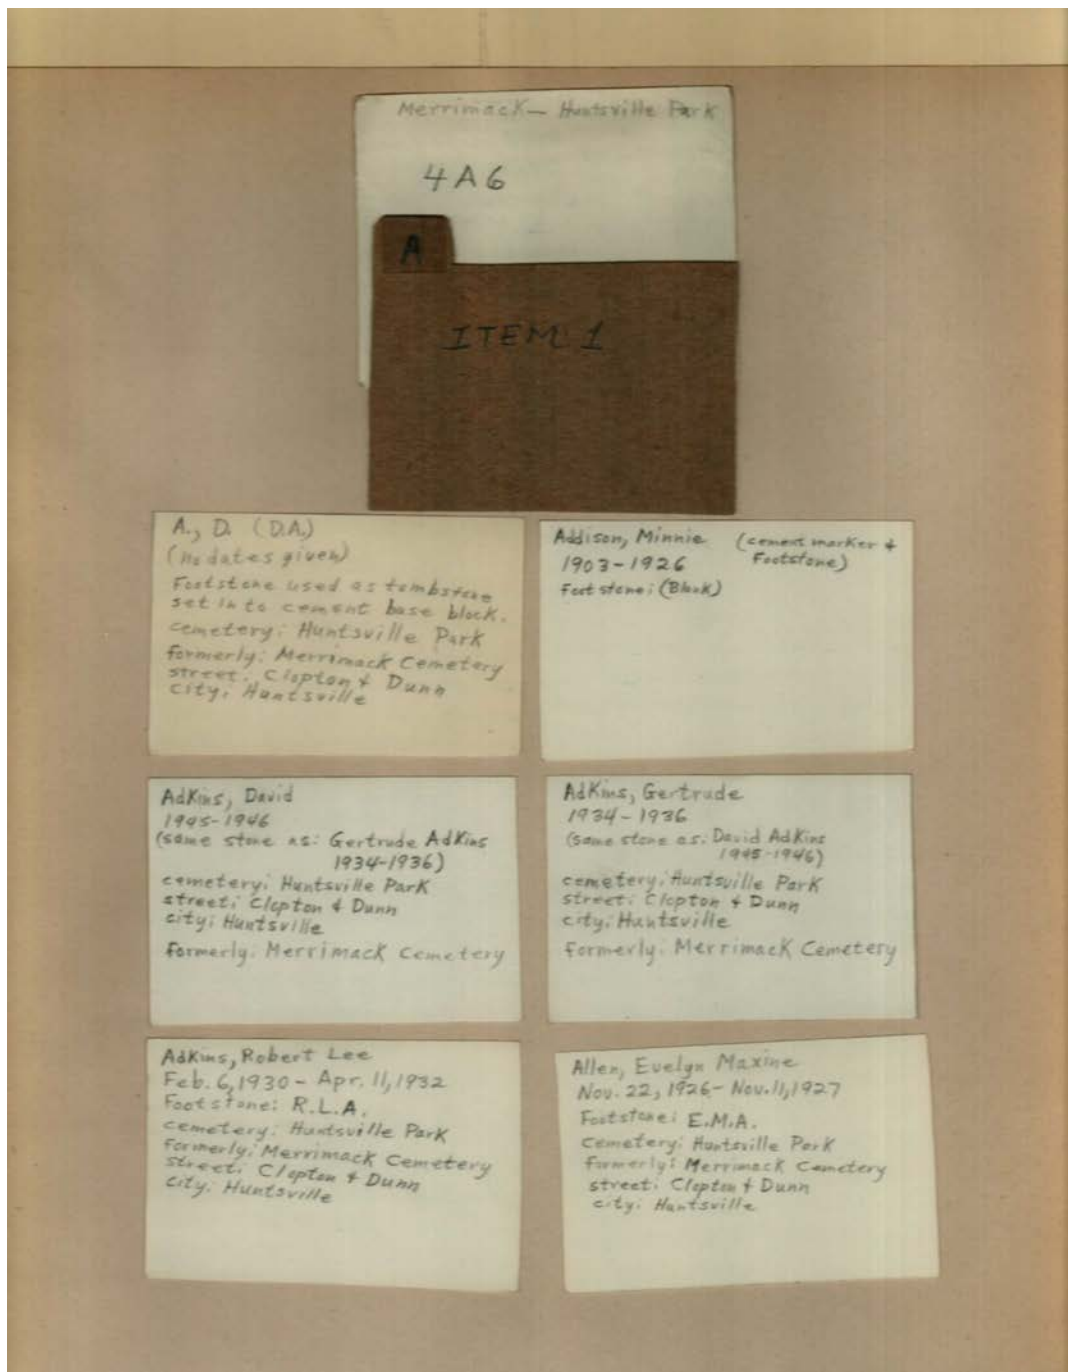 Merrimack - Huntsville Park
4A6
A
ITEM 1
A., D. (D.A.)
(no dates given)
Footstone used as tombstone
set in to cement base block.
cemetery: Huntsville Park
formerly: Merrimack Cemetery
street: Clopton & Dunn
city: Huntsville
Addison, Minnie (cement marker &
1903-1926 Footstone)
Foot stone: (Blank)
Adkins, David
1945-1946
(same stone as: Gertrude Adkins
1934-1936)
cemetery: Huntsville Park
street: Clopton & Dunn
city: Huntsville
formerly: Merrimack Cemetery
Adkins, Gertrude
1934-1936
(same stone as: David Adkins
1945-1946)
cemetery: Huntsville Park
street: Clopton & Dunn
city: Huntsville
formerly: Merrimack Cemetery
Adkins, Robert Lee
Feb. 6, 1930 - Apr. 11, 1932
Footstone: R.L.A.
cemetery: Huntsville Park
formerly: Merrimack Cemetery
street: Clopton & Dunn
city: Huntsville
Allen, Evelyn Maxine
Nov. 22, 1926 - Nov. 11, 1927
Footstone: E.M.A.
cemetery: Huntsville Park
formerly: Merrimack Cemetery
street: Clopton & Dunn
city: Huntsville